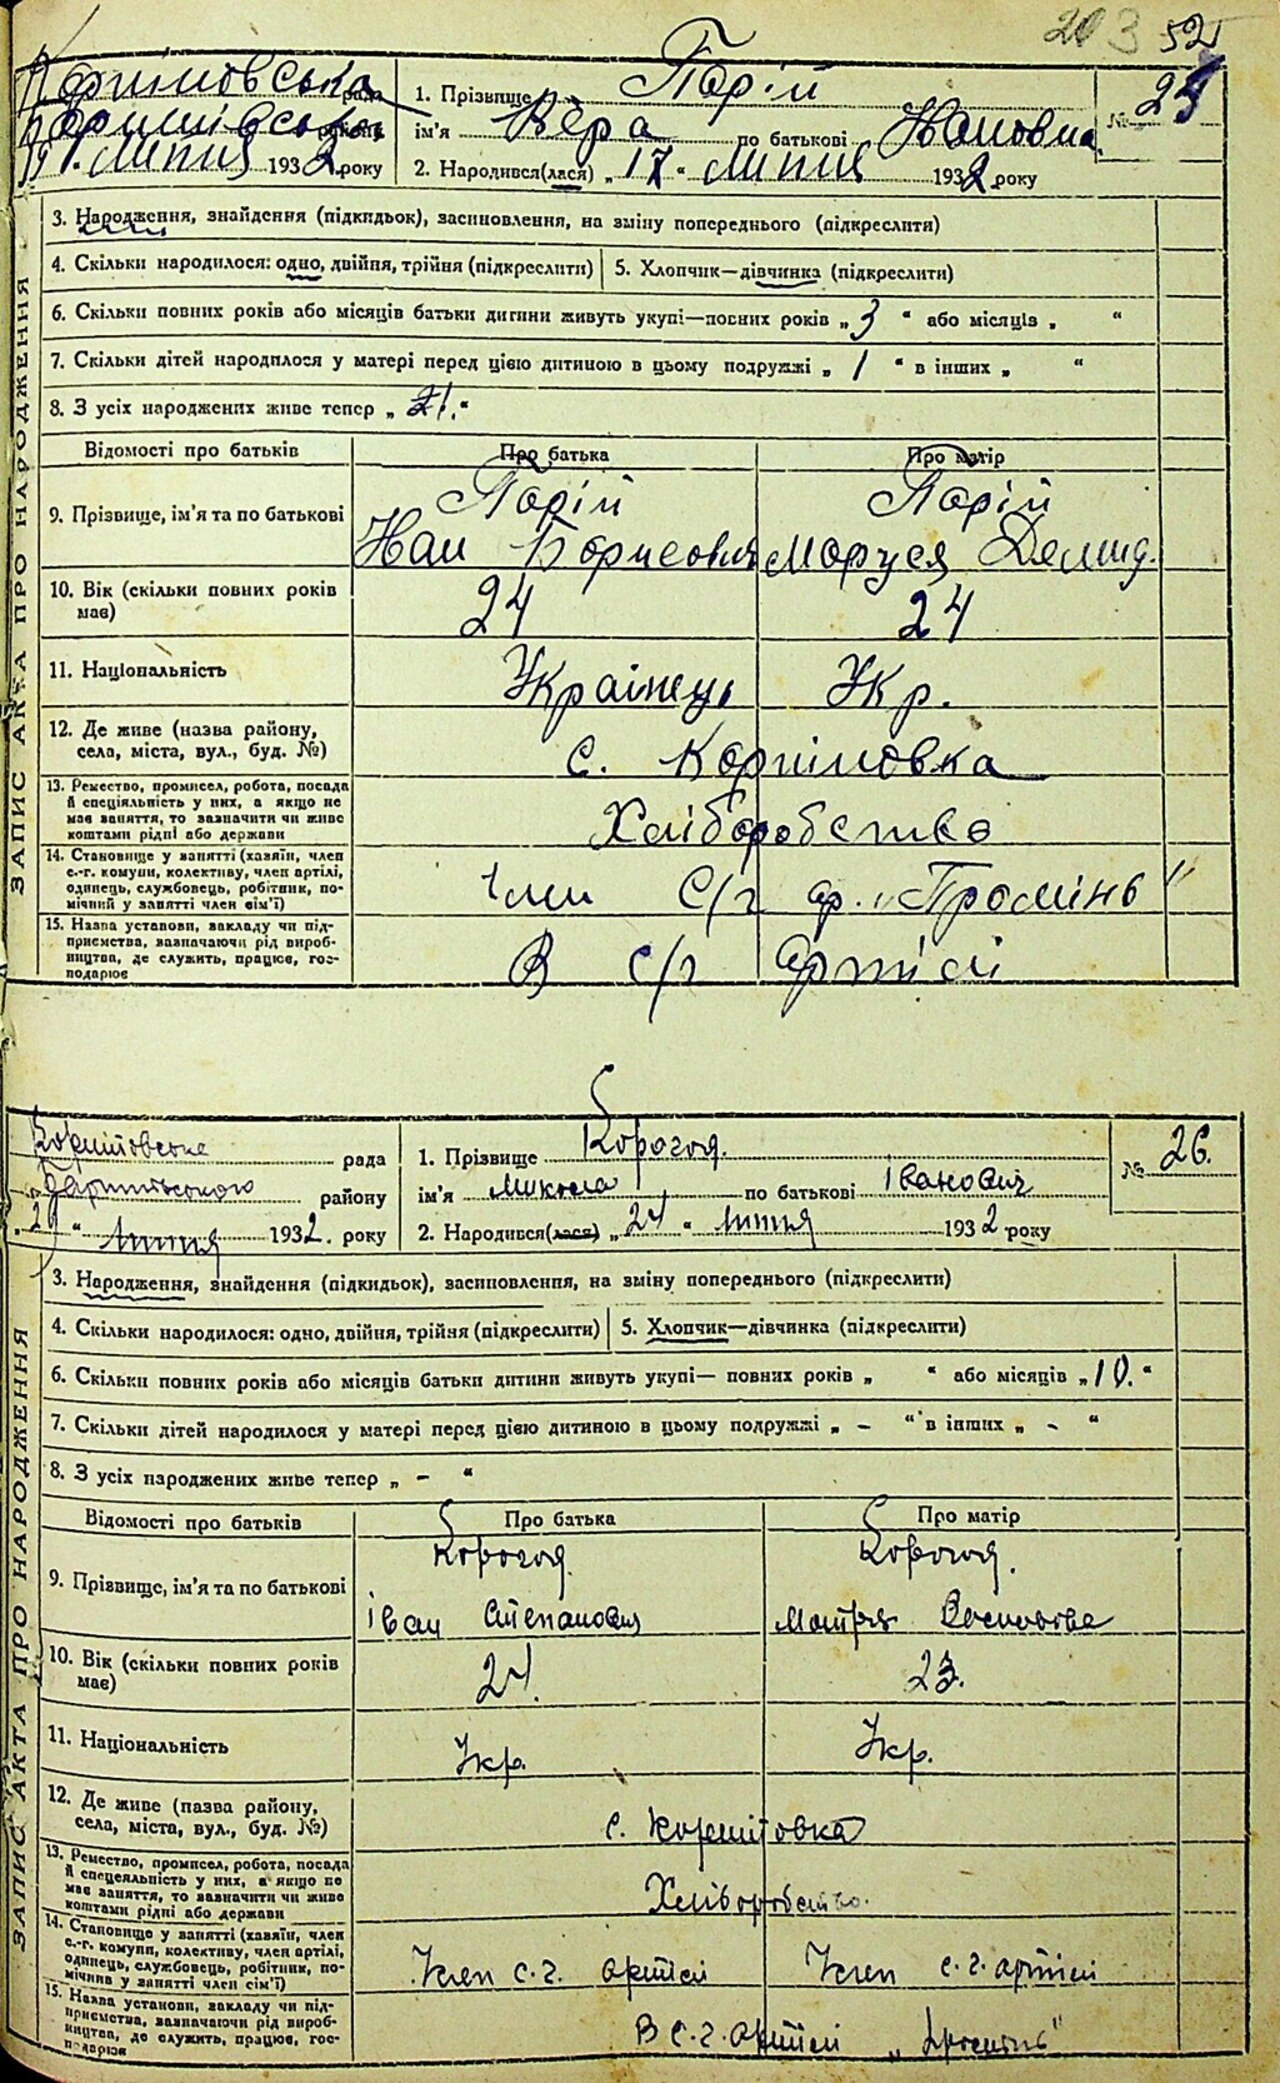 203 52
рада
району
липня 1932 року
1. Прізвище Порій
ім'я Вера по батькові
2. Народився(лася) „17“ липня 1932 року
№ 25
ЗАПИС АКТА ПРО НАРОДЖЕННЯ
3. Народження, знайдення (підкидьок), засиновлення, на зміну попереднього (підкреслити)
4. Скільки народилося: одно, двійня, трійня (підкреслити) 5. Хлопчик—дівчинка (підкреслити)
6. Скільки повних років або місяців батьки дитини живуть укупі—повних років „3“ або місяців „ “
7. Скільки дітей народилося у матері перед цією дитиною в цьому подружжі „1“ в інших „ “
8. З усіх народжених живе тепер „ “
Відомості про батьків Про батька Про матір
9. Прізвище, ім'я та по батькові
Порій Порій
Борисович Маруся Демид.
10. Вік (скільки повних років має)
24 24
11. Національність
Українець Укр.
12. Де живе (назва району, села, міста, вул., буд. №)
с.
13. Ремество, промисел, робота, посада
й спеціяльність у них, а якщо не
має заняття, то зазначити чи живе
коштами рідні або держави
Хліборобство
14. Становище у занятті (хазяїн, член
с.-г. комуни, колективу, член артілі,
одинець, службовець, робітник, по-
мічний у занятті член сім'ї)
член С/г ар. „Промінь“
15. Назва установи, закладу чи під-
приємства, зазначаючи рід вироб-
ництва, де служить, працює, гос-
подарює
В с/г артілі
рада
району
29 “ липня 1932. року
1. Прізвище Корогод.
ім'я Микола по батькові Іванович
2. Народився(лася) „24“ липня 1932 року
№ 26.
ЗАПИС АКТА ПРО НАРОДЖЕННЯ
3. Народження, знайдення (підкидьок), засиновлення, на зміну попереднього (підкреслити)
4. Скільки народилося: одно, двійня, трійня (підкреслити) 5. Хлопчик—дівчинка (підкреслити)
6. Скільки повних років або місяців батьки дитини живуть укупі— повних років „ “ або місяців „10.“
7. Скільки дітей народилося у матері перед цією дитиною в цьому подружжі „ - “ в інших „ - “
8. З усіх народжених живе тепер „ - “
Відомості про батьків Про батька Про матір
9. Прізвище, ім'я та по батькові
Корогод. Корогод.
Іван Степанович
10. Вік (скільки повних років має)
24. 23.
11. Національність
Укр. Укр.
12. Де живе (назва району, села, міста, вул., буд. №)
с.
13. Ремество, промисел, робота, посада
й спецеяльність у них, а якщо не
має заняття, то зазначити чи живе
коштами рідні або держави
Хліборобство.
14. Становище у занятті (хазяїн, член
с.-г. комуни, колективу, член артілі,
одинець, службовець, робітник, по-
мічник у занятті член сім'ї)
Член с.г. артілі Член с.г. артілі
15. Назва установи, закладу чи під-
приємства, зазначаючи рід вироб-
ництва, де служить, працює, гос-
подарює
В с.-г. артілі